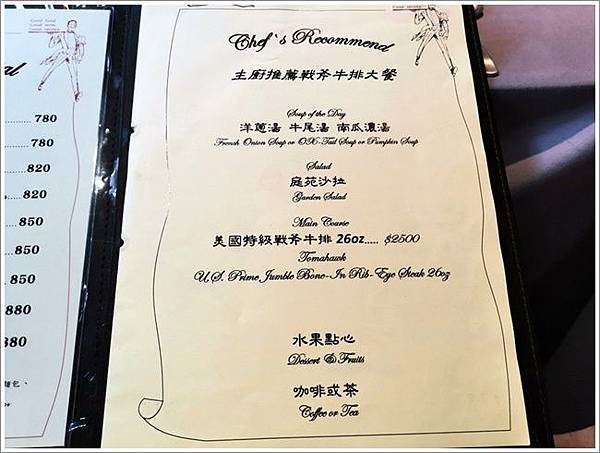 Chef's Recommend
主廚推薦戰斧牛排大餐
Soup of the Day
洋蔥湯 牛尾湯 南瓜濃湯
French Onion Soup or OX-Tail Soup or Pumpkin Soup
Salad
庭苑沙拉
Garden Salad
Main Course
美國特級戰斧牛排 26oz..... $2500
Tomahawk
U.S. Prime Jumble Bone-In Rib-Eye Steak 26oz
水果點心
Dessert & Fruits
咖啡或茶
Coffee or Tea
780
780
820
820
850
850
850
880
麵包、